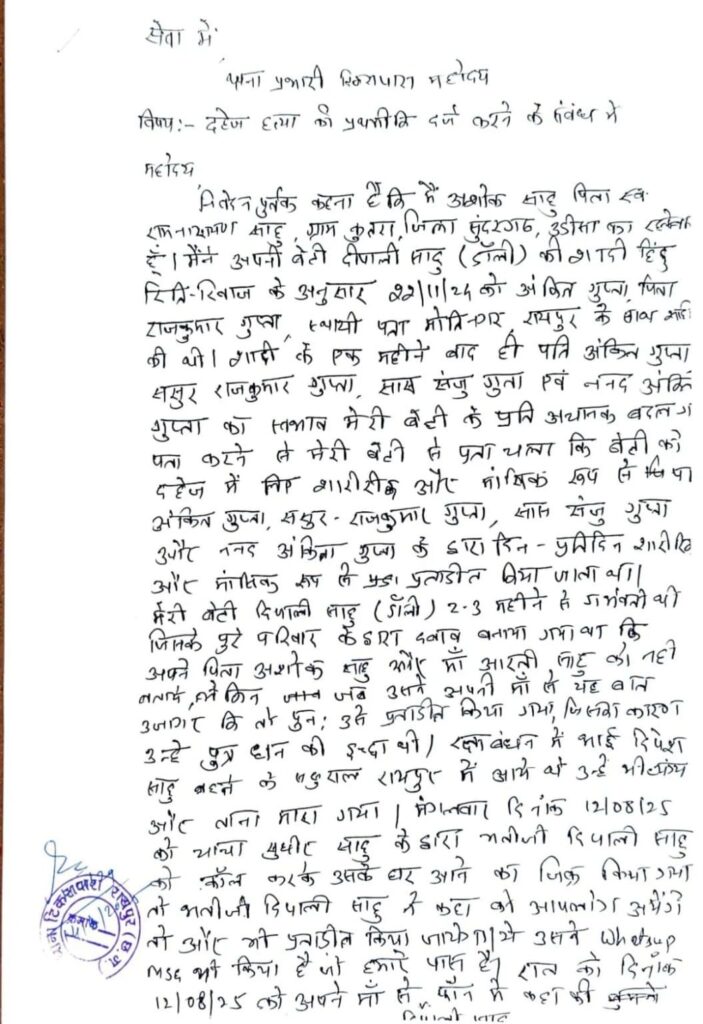 सेवा में
थाना प्रभारी महोदय
विषय:- दहेज हत्या की प्रथमीकि दर्ज करने के संबंध में
महोदय
निवेदन पूर्वक कहना है कि मैं अशोक साहु पिता स्व.
रामनारायण साहु, ग्राम कुतरा, जिला सुंदरगढ, उडीसा का रहनेवाला
हूँ। मैंने अपनी बेटी दीपाली साहु (डॉली) की शादी हिंदु
रिति-रिवाज के अनुसार 22/11/24 को अंकित गुप्ता, पिता
राजकुमार गुप्ता, स्थायी पता मोतिनगर, रायपुर के साथ शादी
की थी। शादी के एक महीने बाद ही पति अंकित गुप्ता
ससुर राजकुमार गुप्ता, सास संजु गुप्ता एवं ननद अंकि
गुप्ता का स्वभाव मेरी बेटी के प्रति अचानक बदल ग
पता करने से मेरी बेटी से पता चला कि बेटी को
दहेज में लिए शारीरीक और मांसिक रूप से
अंकित गुप्ता, ससुर-राजकुमार गुप्ता, सास संजु गुप्ता
और ननद अंकिता गुप्ता के द्वारा दिन-प्रतिदिन शारीरि
और मांसिक रूप से प्रताडीत किया जाता था।
मेरी बेटी दिपाली साहु (डॉली) 2-3 महीने से गर्भवती थी
जिसके पुरे परिवार के द्वारा दबाव बनाया गया था कि
अपने पिता अशोक साहु और माँ आरती साहु को नही
बताये, लेकिन जब उसने अपनी माँ से यह बात
उजागर कि तो पुन: उसे प्रताडीत किया गया, जिसका कारण
उन्हे पुत्र धन की इच्छा थी। रक्षाबंधन में भाई दिपेश
साहु बहन के ससुराल रायपुर में आये थे उन्हे भी व्यंग्य
और ताना मारा गया। मंगलवार दिनांक 12/08/25
को चाचा सुधीर साहु के द्वारा भतीजी दिपाली साहु
को कॉल करके उसके घर आने का जिक्र किया गया
तो भतीजी दिपाली साहु ने कहा की आपलोग आयेंगे
तो और भी प्रताडीत किया जायेगा। ये उसने Whatsup
msg भी किया है जो हमारे पास है। रात को दिनाँक
12/08/25 को अपने माँ से फोन में कहा की
दिपाली साहु
रायपुर छ.ग.